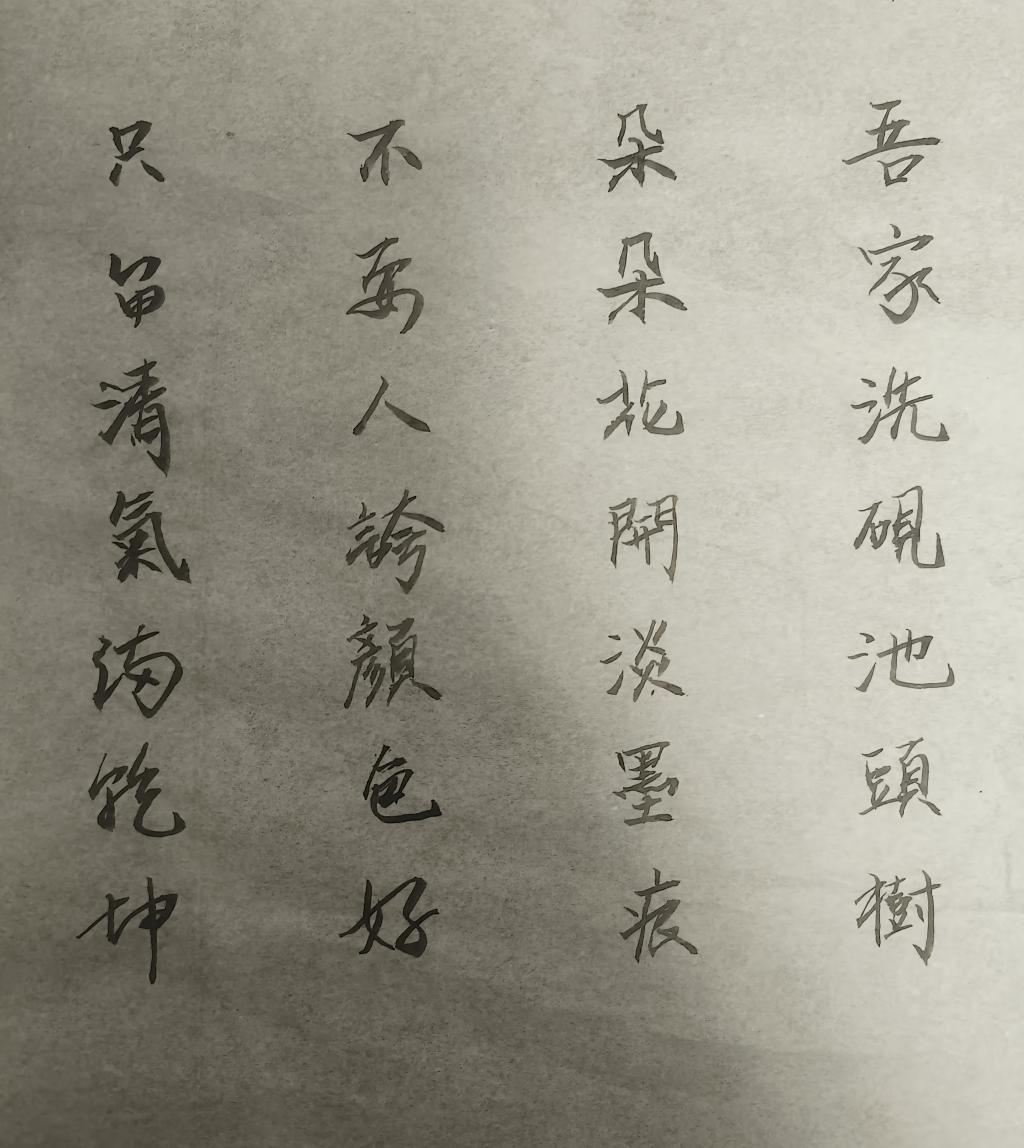 吾家洗硯池頭樹
朵朵花開淡墨痕
不要人誇顏色好
只留清氣滿乾坤